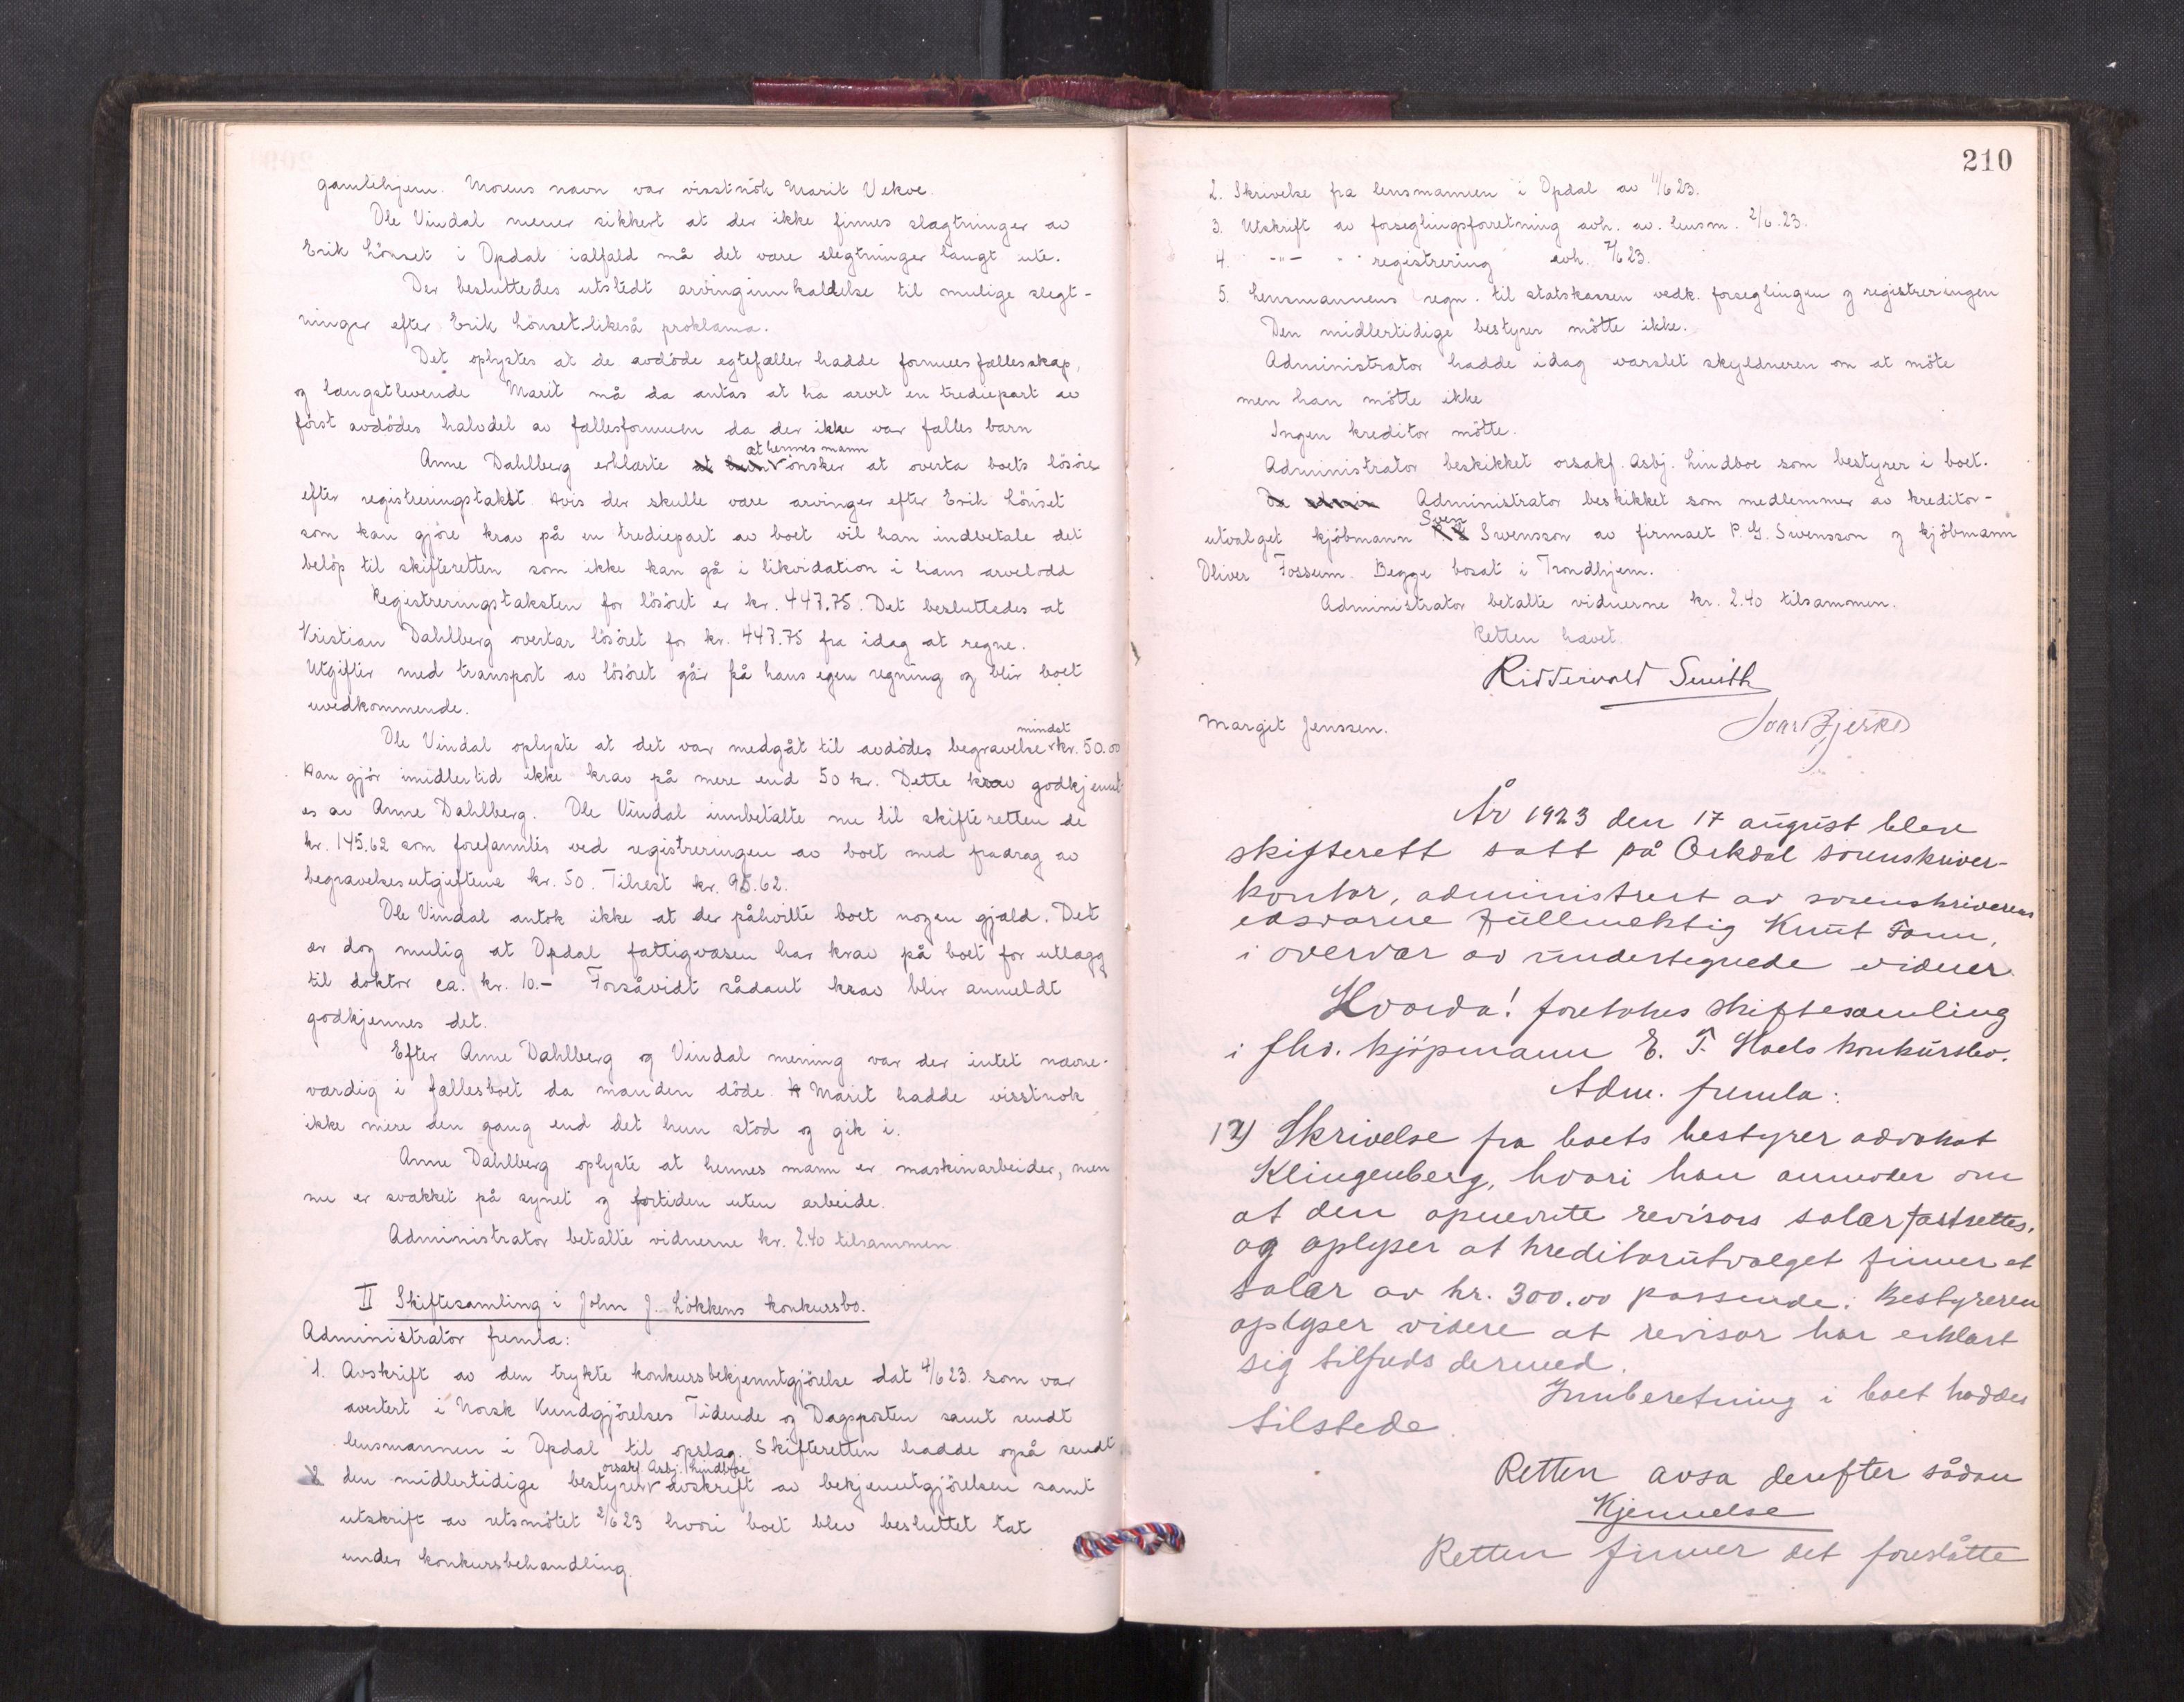 gamlehjem. Morens navn var visstnok Marit Vekve.
Ole Vindal mener sikkert at der ikke finnes slagtninger av
Erik Hönset i Opdal ialfald må det være slegtninger langt ute.
Der besluttedes utstedt arvinginnkaldelse til mulige slegt-
ninger efter Erik Hönset likeså proklama.
Det oplystes at de avdöde egtefæller hadde formuesfællesskap,
og længstlevende Marit må da antas at ha arvet en trediepart av
först avdödes halvdel av fællesformuen da der ikke var fælles barn
Anne Dahlberg erklærte at hennes mann önsker at overta boets lösöre
efter registreringstakst. Hvis der skulle være arvinger efter Erik Hönset
som kan gjöre krav på en trediepart av boet vil han indbetale det
belöp til skifteretten som ikke kan gå i likvidation i hans arvelodd
Registreringstaksten for lösöret er kr. 447.75. Det besluttedes at
Kristian Dahlberg overtar lösöret for kr. 447.75 fra idag at regne.
Utgifter med transport av lösöret går på hans egen regning og blir boet
uvedkommende.
Ole Vindal oplyste at det var medgåt til avdödes begravelse mindst kr. 50.00
Han gjör imidlertid ikke krav på mere end 50 kr. Dette krav godkjennt-
es av Anne Dahlberg. Ole Vindal innbetalte nu til skifteretten de
kr. 145.62 som forefantes ved registreringen av boet med fradrag av
begravelsesutgiftene kr. 50. Tilrest kr. 95.62.
Ole Vindal antok ikke at der påhvilte boet nogen gjæld. Det
er dog mulig at Opdal fattigvæsen har krav på boet for utlagg
til doktor ca. kr. 10.- Forsåvidt sådant krav blir anmeldt
godkjennes det.
Efter Anne Dahlberg og Vindal mening var der intet nævne-
værdig i fællesboet da manden döde. Marit hadde visstnok
ikke mere den gang end det hun stod og gik i.
Anne Dahlberg oplyste at hennes mann er maskinarbeider, men
nu er svækket på synet og fortiden uten arbeide.
Administrator betalte vidnerne kr. 2.40 tilsammen
II Skiftesamling i John J. Lökkens konkursbo.
Administrator fremla:
1. Avskrift av den trykte konkursbekjenntgjörelse dat 4/6 23. som var
avertert i Norsk Kundgjörelses Tidende og Dagsposten samt sendt
lensmannen i Opdal til opslag. Skifteretten hadde også sendt
den midlertidige bestyrer orsakf Asbj. Lindboe avskrift av bekjenntgjörelsen samt
utskrift av retsmötet 2/6 23 hvori boet blev besluttet tat
under konkursbehandling.
210
2. Skrivelse fra lensmannen i Opdal av 11/6 23.
3. Utskrift av forseglingsforretning avh. av. lensm. 2/6. 23.
4. -"- " registrering avh. 7/6 23.
5. Lensmannens regn. til statskassen vedk. forseglingen og registreringen
Den midlertidige bestyrer mötte ikke.
Administrator hadde idag varslet skyldneren om at möte
men han mötte ikke
Ingen kreditor mötte.
Administrator beskikket orsakf. Asbj. Lindboe som bestyrer i boet.
Administrator beskikket som medlemmer av kreditor-
utvalget kjöbmann Sven Svensson av firmaet P. G. Svensson og kjöbmann
Oliver Fossum. Begge bosat i Trondhjem.
Administrator betalte vidnerne kr. 2.40 tilsammen.
Retten hævet.
Riddervold Smith
Margit Jenssen.
Bjerke
År 1923 den 17 august blev
skifterett satt på Orkdal sorenskriver-
kontor, administrert av sorenskriverens
edsvorne fullmektig Knut Fonn,
i overvær av undertegnede vidner.
Hvorda! foretokes skiftesamling
i fhv. kjöpmann E. T. Hoels konkursbo.
Adm. fremla:
12) Skrivelse fra boets bestyrer advokat
Klingenberg, hvori han anmoder om
at den opnevnte revisors salær fastsettes,
og oplyser at kreditorutvalget finner et
salær av kr. 300.00 passende. Bestyreren
oplyser videre at revisor har erklært
sig tilfreds dermed.
Innberetning i boet haddes
tilstede.
Retten avsa derefter sådan
Kjennelse
Retten finner det foreslåtte